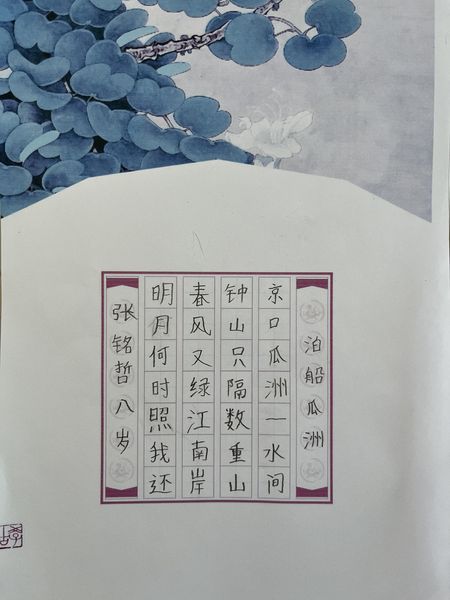 泊船瓜洲
京口瓜洲一水间
钟山只隔数重山
春风又绿江南岸
明月何时照我还
张铭哲八岁